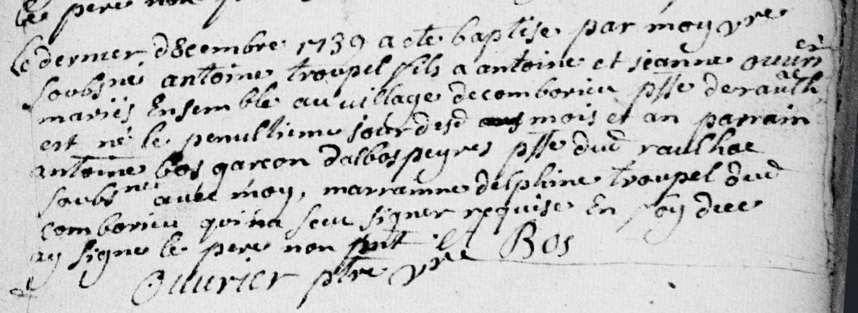 le pere non
Le dernier decembre 1739 a ete baptise par moy vre
soubsne antoine troupel fils a antoine et jeanne ouvrier
mariés Ensemble au village de comborieu psse de raulh
est né le penultieme jour desd mois et an parrain
antoine bos garcon dalbospeyres psse dud raulhac
soubsnes avec moy, marrainne delphine troupel dud
comborieu qui na sceu signer requise En foy de ce
ay signe le pere non pnt et Bos
Ouvrier ptre vre